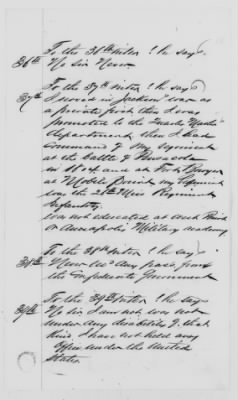 To the 36th Inter: he says
36th No Sir Never
To the 37th Inter: he says
37th I served in Jacksons war as
a private first then I was
promoted to the Quarter Master
Department, then I had
Command of My regiment
at the battle of Pensacola
in 1814 and at Fort Bowyer
at Mobile Point, my regiment
was the 2nd Regiment
Infantry.
Was not educated at West Point
or Annapolis Military academy
To the 38th Inter: he says
38th Never had any pass from
the Confederate Government
To the 39th Inter: he says
39th No Sir I am not was not
under any disability of that
kind I have not held any
Office under the United
States